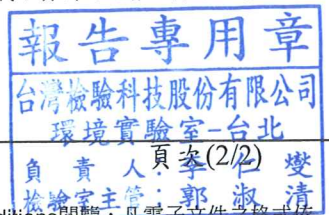 報告專用章
台灣檢驗科技股份有限公司
環境實驗室-台北
頁次(2/2)
負責人：李仁燮
檢驗室主管：郭淑清
ditions閱覽，凡電子文件之格式依